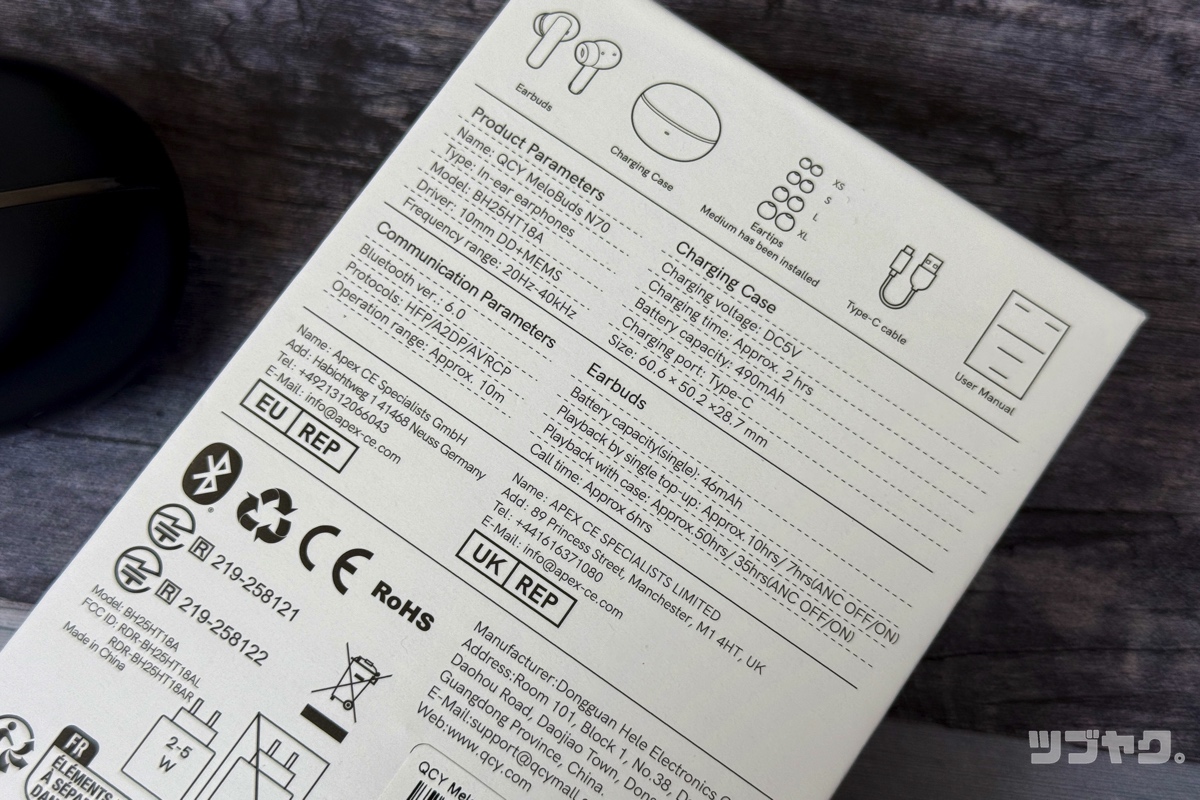 Earbuds
Charging Case
XS
S
L
XL
Eartips
Medium has been installed
Type-C cable
User Manual
Product Parameters
Name: QCY MeloBuds N70
Type: In-ear earphones
Model: BH25HT18A
Driver: 10mm DD+MEMS
Frequency range: 20Hz-40kHz
Communication Parameters
Bluetooth ver.: 6.0
Protocols: HFP/A2DP/AVRCP
Operation range: Approx. 10m
Charging Case
Charging voltage: DC5V
Charging time: Approx. 2 hrs
Battery capacity: 490mAh
Charging port: Type-C
Size: 60.6 × 50.2 ×28.7 mm
Earbuds
Battery capacity(single): 46mAh
Playback by single top-up: Approx. 10hrs/ 7hrs(ANC OFF/ON)
Playback with case: Approx.50hrs/ 35hrs(ANC OFF/ON)
Call time: Approx 6hrs
Name: Apex CE Specialists GmbH
Add: Habichtweg 1 41468 Neuss Germany
Tel: +4921312066043
E-Mail: info@apex-ce.com
EU REP
Name: APEX CE SPECIALISTS LIMITED
Add: 89 Princess Street, Manchester, M1 4HT, UK
Tel: +441616371080
E-Mail: info@apex-ce.com
UK REP
CE
RoHS
R 219-258121
R 219-258122
Model: BH25HT18A
FCC ID: RDR-BH25HT18AL
RDR-BH25HT18AR
Made in China
2-5
W
FR
ÉLÉMENTS
À SÉPAR
DAN
Manufacturer:Dongguan Hele Electronics
Address:Room 101, Block 1, No.38,
Daohou Road, Daojiao Town,
Guangdong Province, China.
E-Mail:support@qcymall.
Web:www.qcy.com
QCY Mel
ツブヤク。